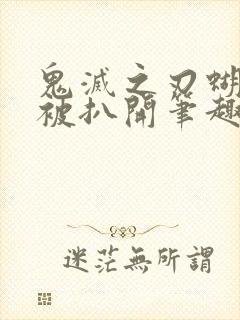 鬼滅之刃蝴
被扒開筆趣
迷茫無所謂